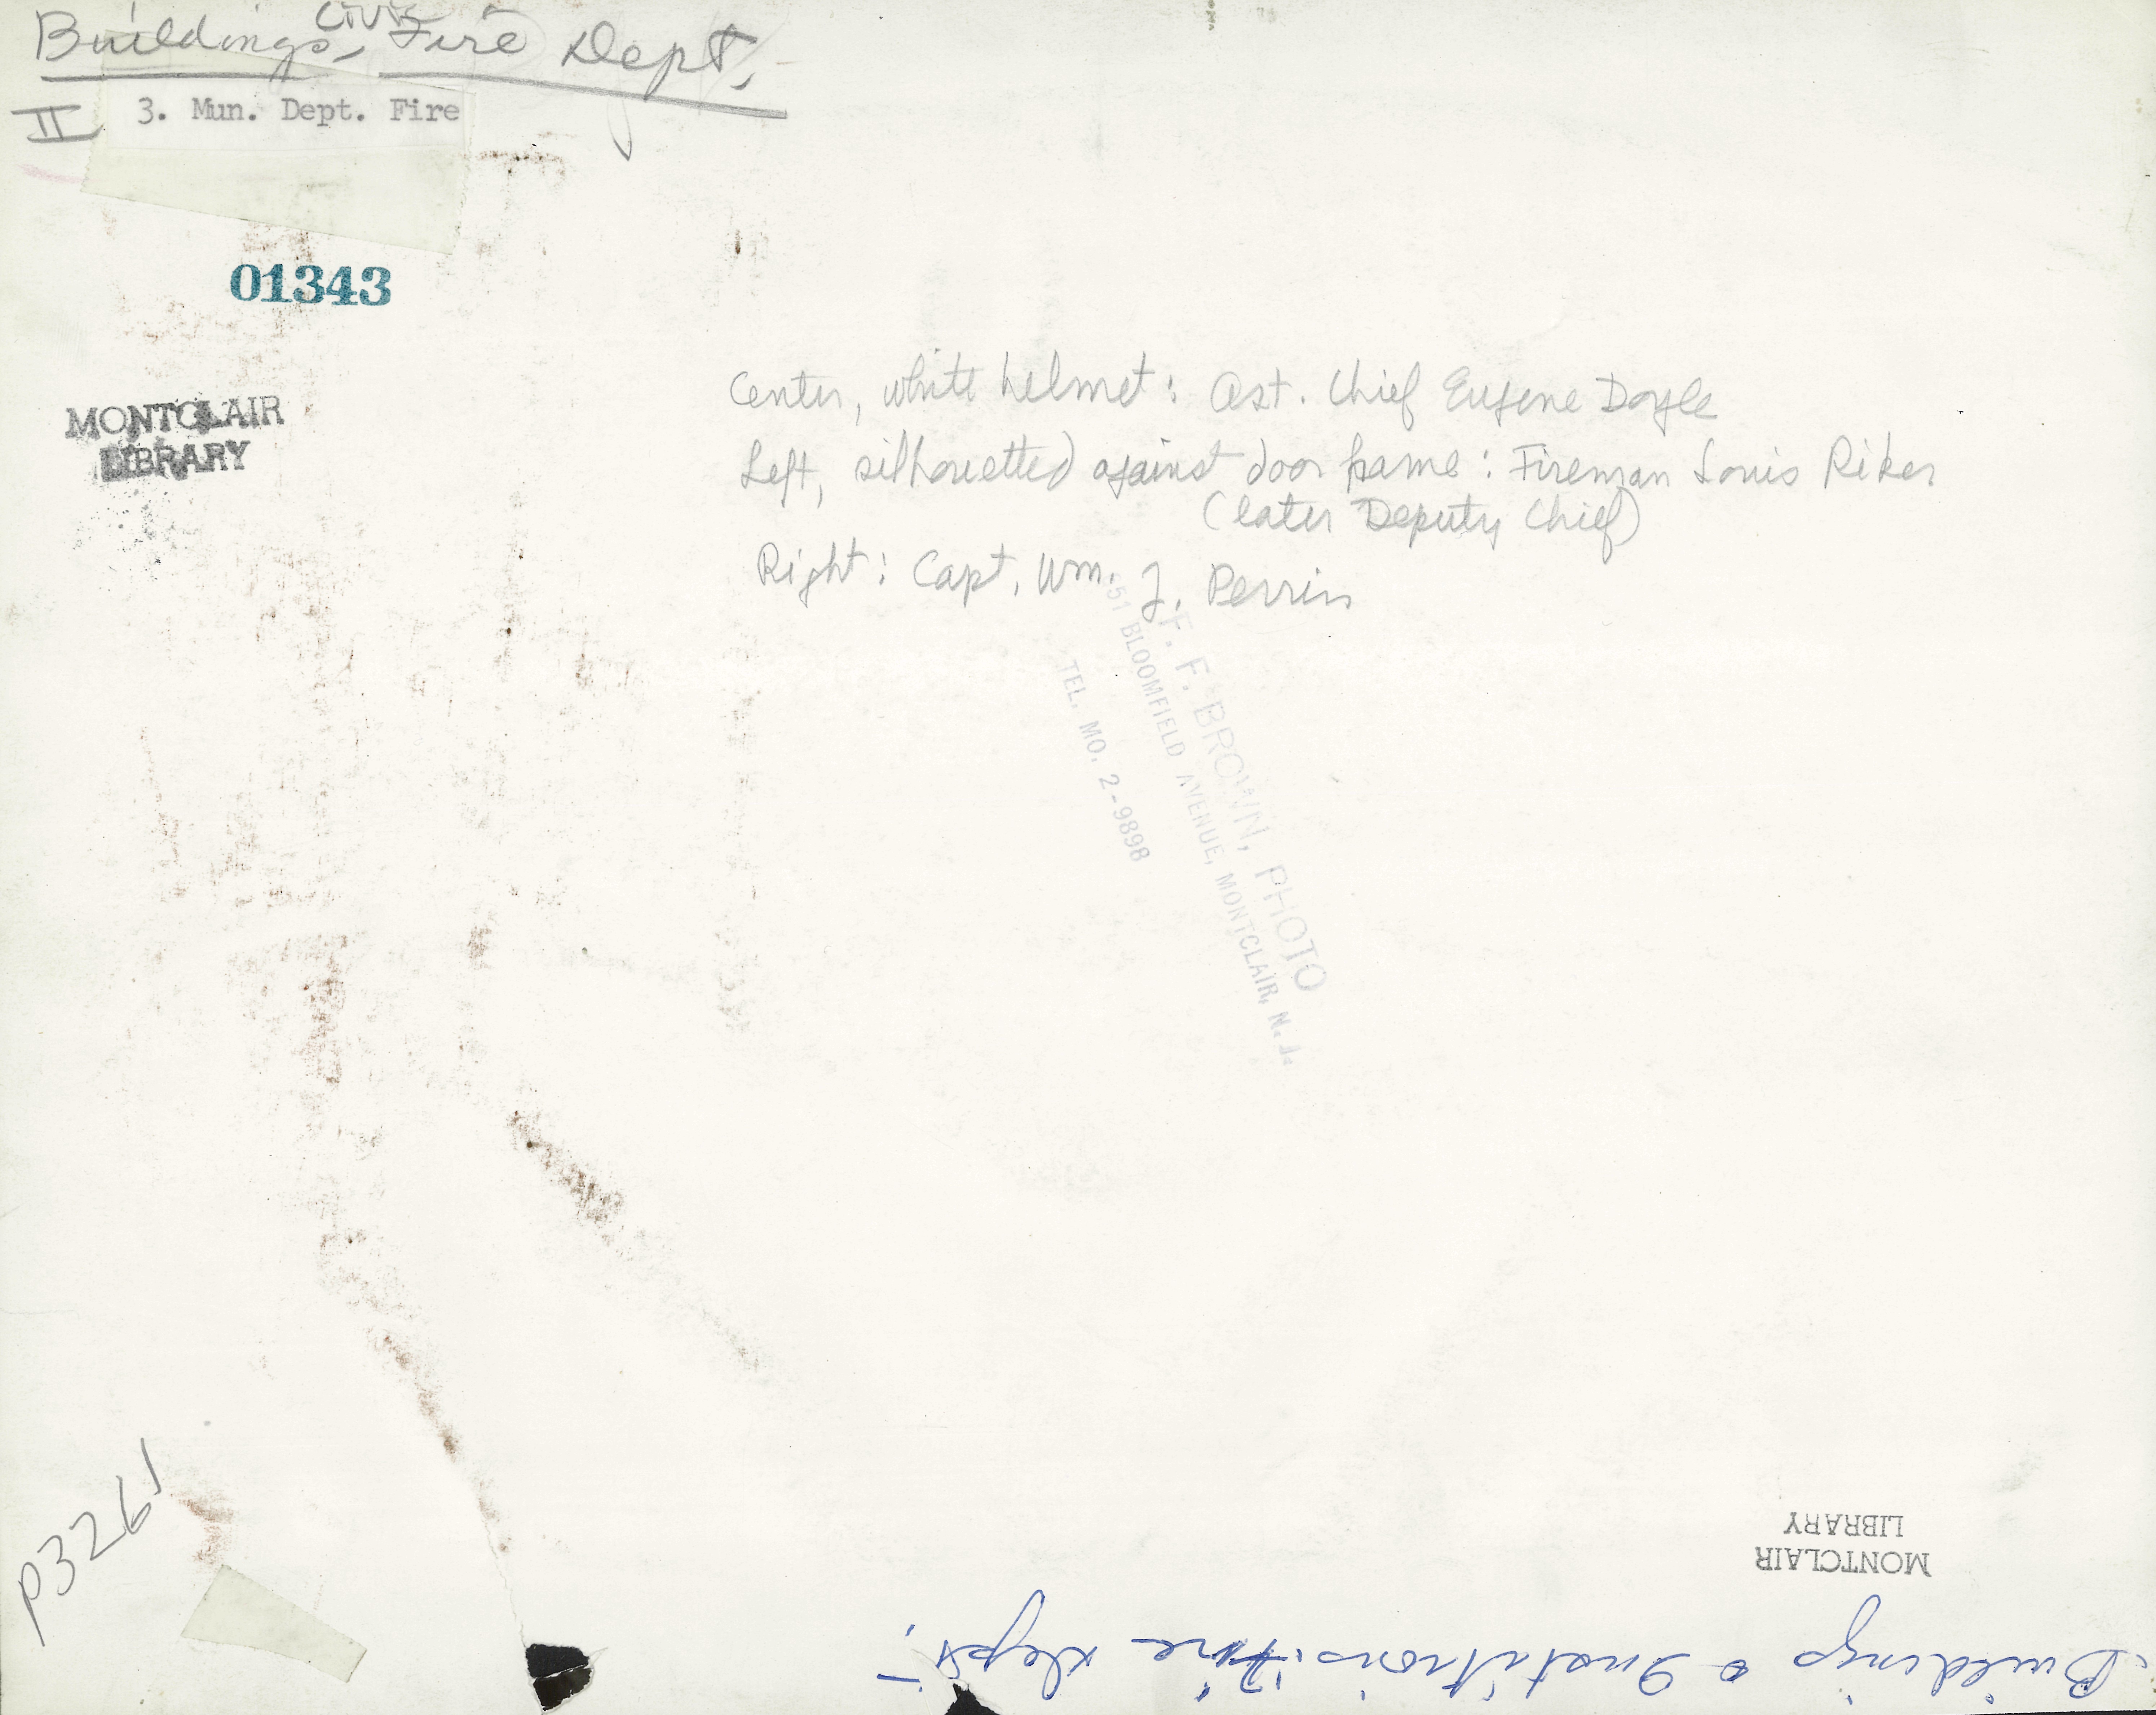 Buildings, Civic Fire Dept.
II 3. Mun. Dept. Fire
01343
MONTCLAIR
LIBRARY
Center, white helmet: Ast. Chief Eugene Doyle
Left, silhouetted against door frame: Fireman Louis Riker
(later Deputy Chief)
Right: Capt. Wm. J. Perrin
F. F. BROWN, PHOTO
51 BLOOMFIELD AVENUE, MONTCLAIR, N. J.
TEL. MO. 2-9898
P3261
MONTCLAIR
LIBRARY
Buildings & Institutions: Fire Dept.